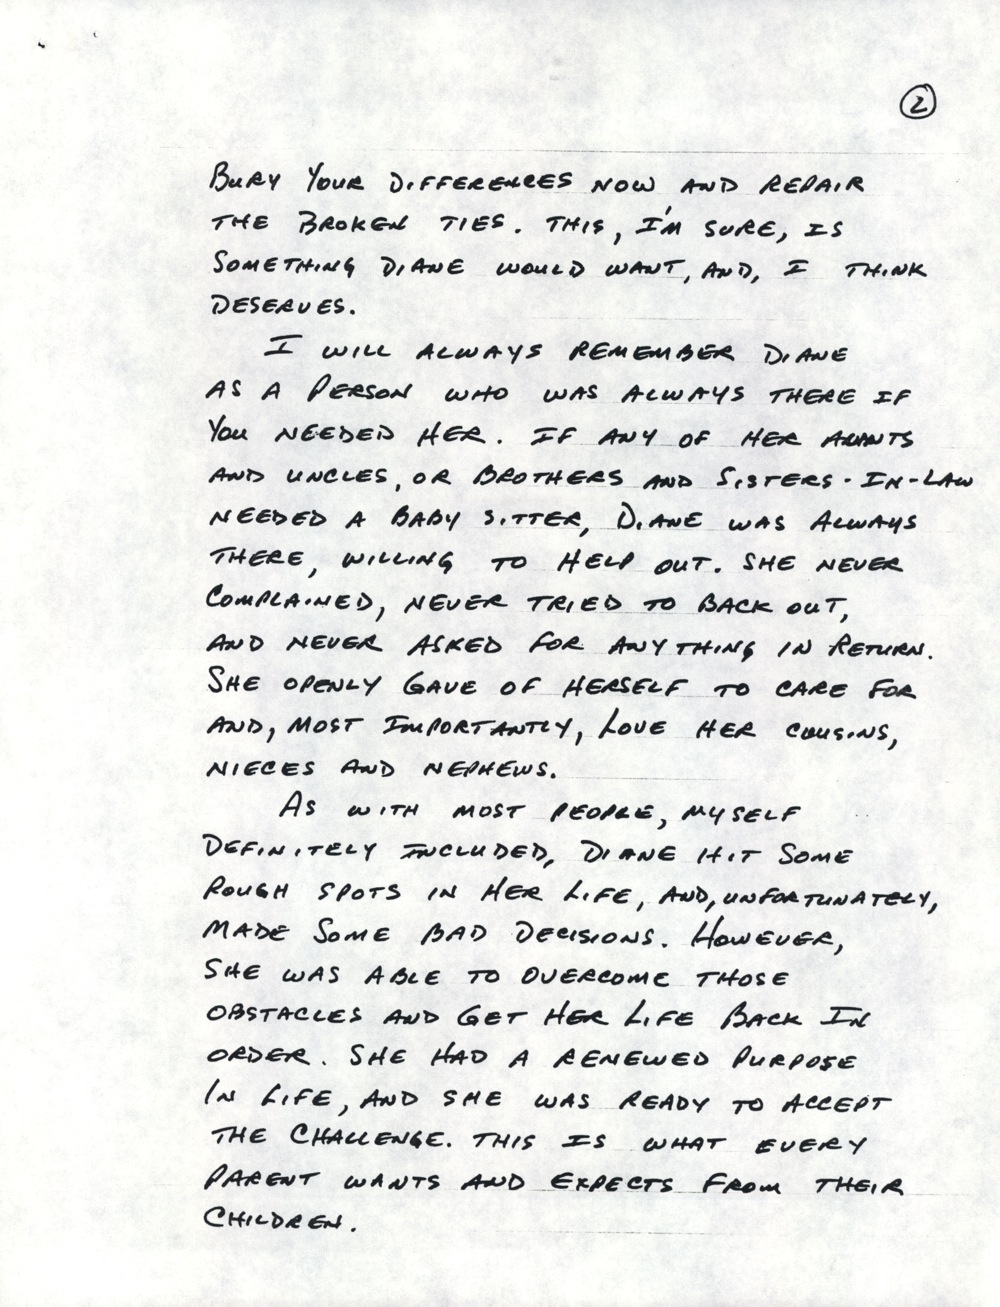 2
BURY YOUR DIFFERENCES NOW AND REPAIR
THE BROKEN TIES. THIS, I'M SURE, IS
SOMETHING DIANE WOULD WANT, AND, I THINK
DESERVES.
I WILL ALWAYS REMEMBER DIANE
AS A PERSON WHO WAS ALWAYS THERE IF
YOU NEEDED HER. IF ANY OF HER AUNTS
AND UNCLES, OR BROTHERS AND SISTERS-IN-LAW
NEEDED A BABY SITTER, DIANE WAS ALWAYS
THERE, WILLING TO HELP OUT. SHE NEVER
COMPLAINED, NEVER TRIED TO BACK OUT,
AND NEVER ASKED FOR ANYTHING IN RETURN.
SHE OPENLY GAVE OF HERSELF TO CARE FOR
AND, MOST IMPORTANTLY, LOVE HER COUSINS,
NIECES AND NEPHEWS.
AS WITH MOST PEOPLE, MYSELF
DEFINITELY INCLUDED, DIANE HIT SOME
ROUGH SPOTS IN HER LIFE, AND, UNFORTUNATELY,
MADE SOME BAD DECISIONS. HOWEVER,
SHE WAS ABLE TO OVERCOME THOSE
OBSTACLES AND GET HER LIFE BACK IN
ORDER. SHE HAD A RENEWED PURPOSE
IN LIFE, AND SHE WAS READY TO ACCEPT
THE CHALLENGE. THIS IS WHAT EVERY
PARENT WANTS AND EXPECTS FROM THEIR
CHILDREN.